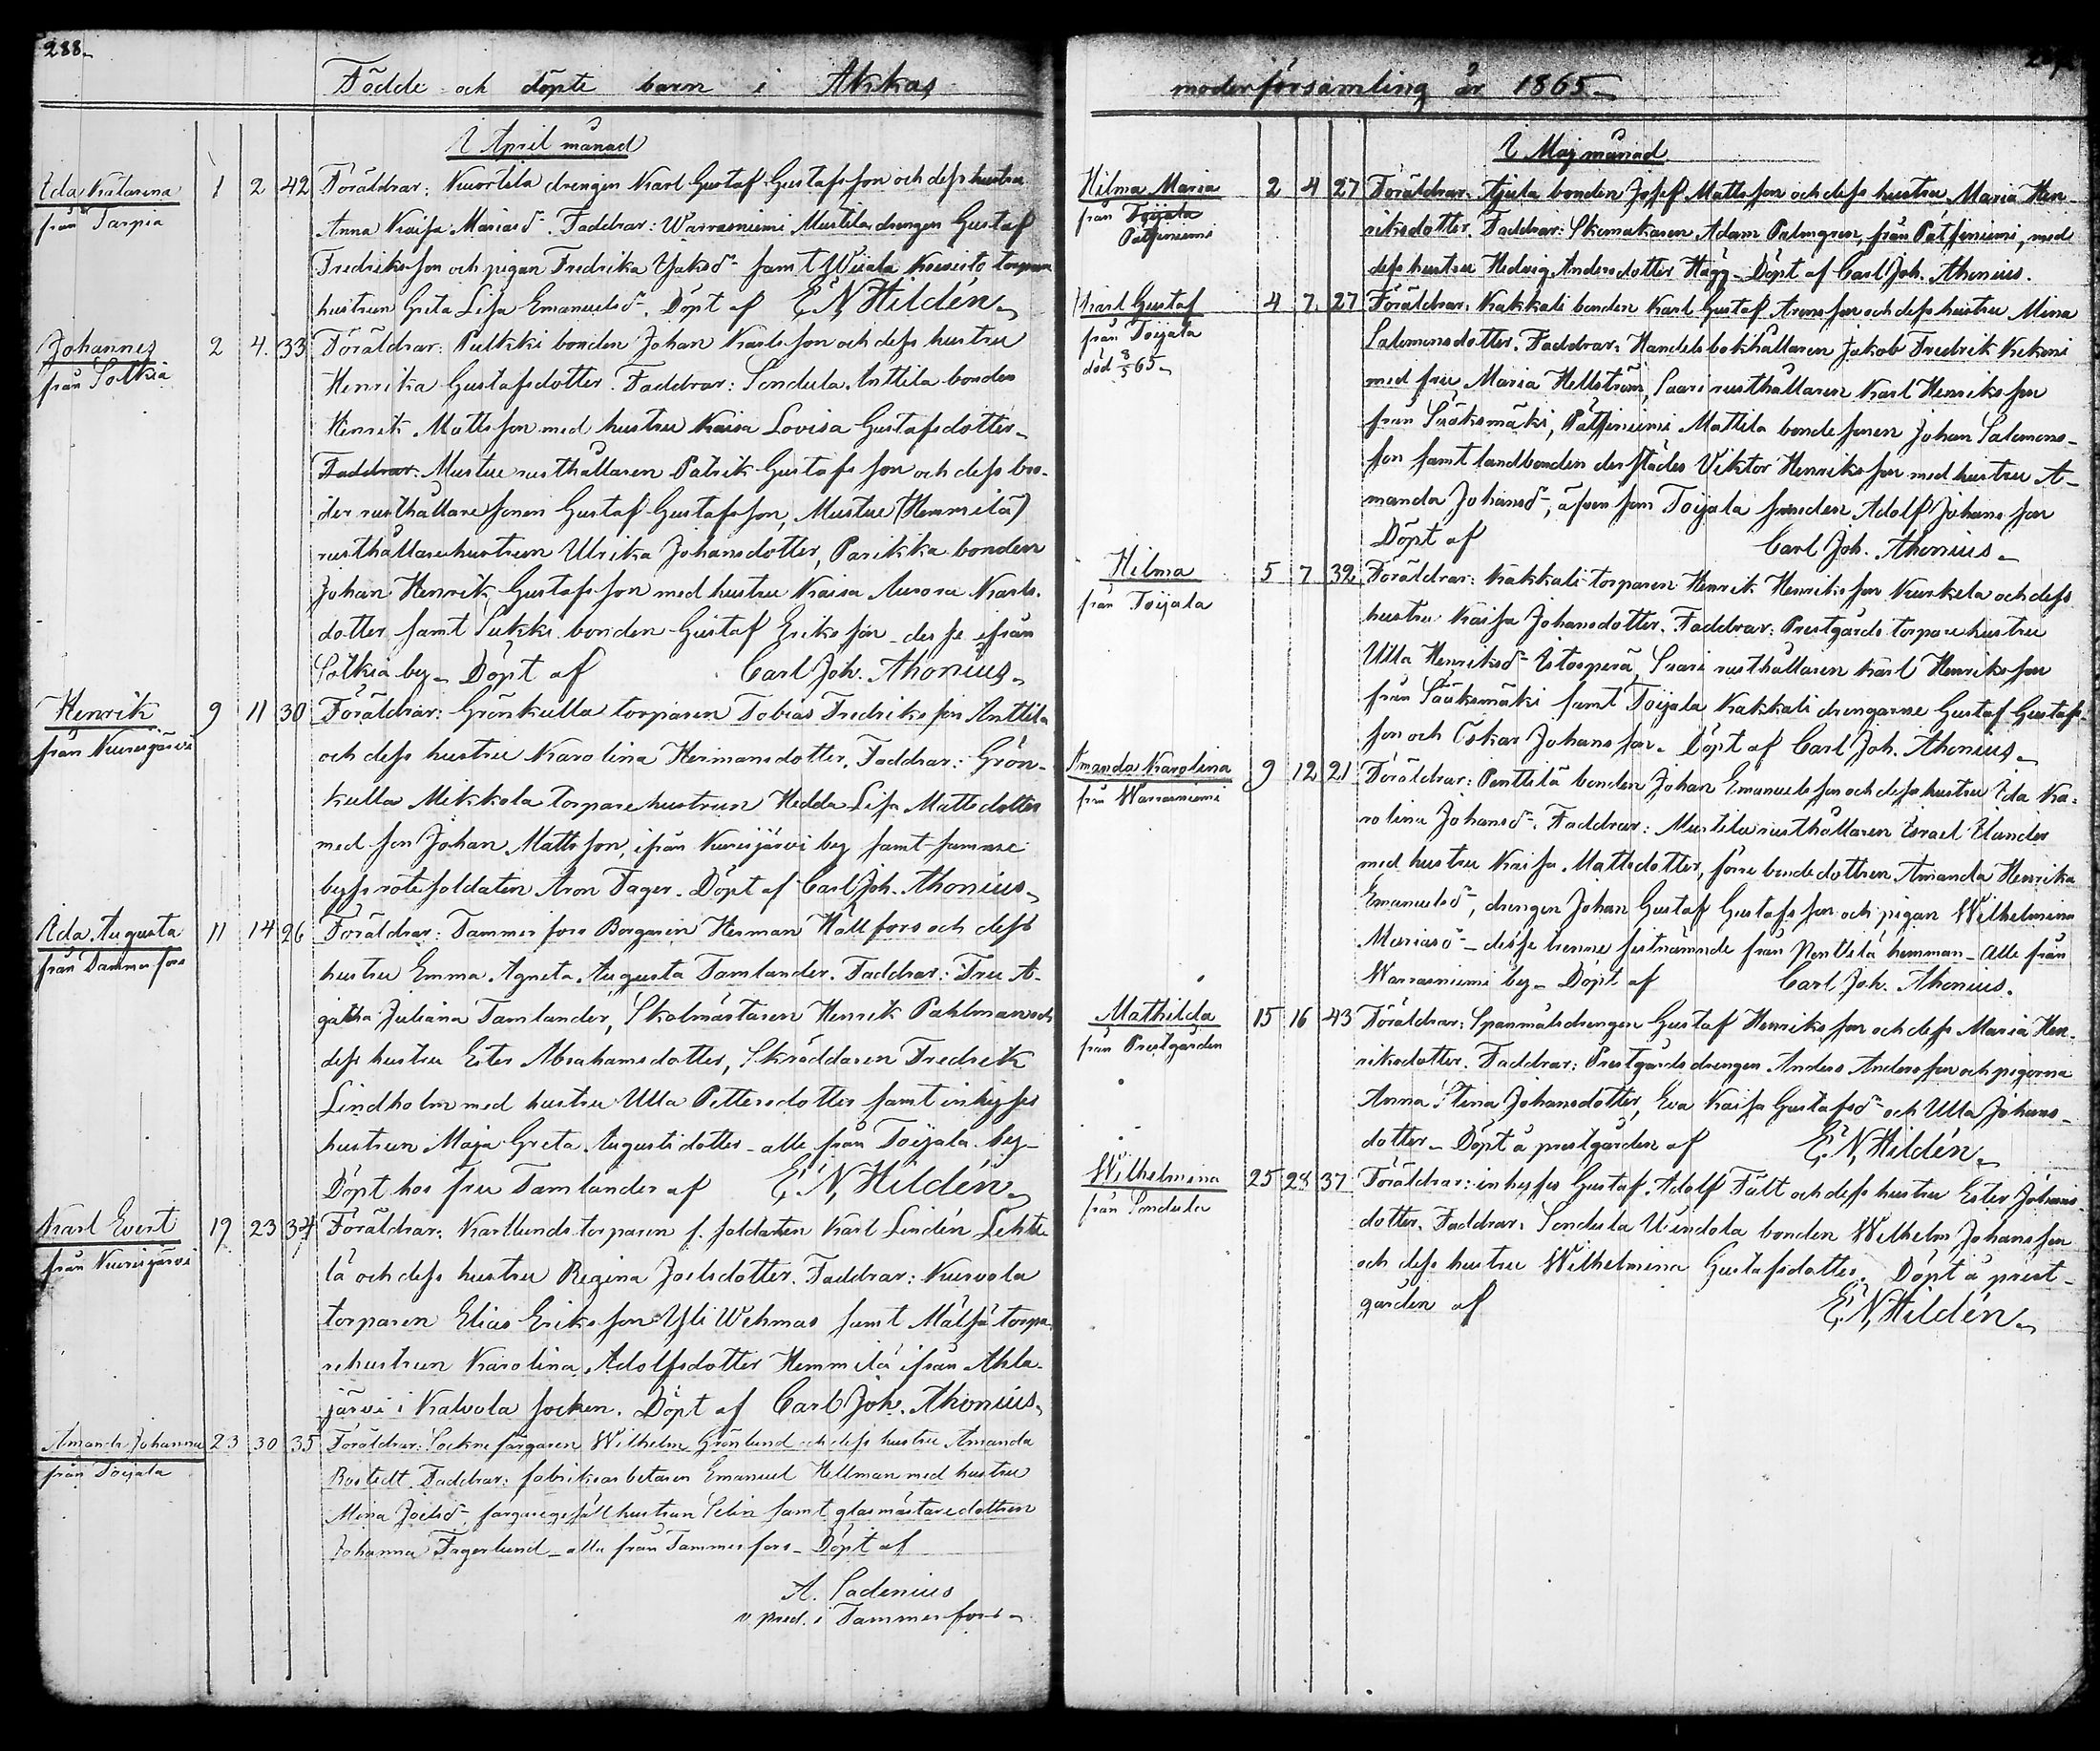 288.
Födde och döpte barn i Akkas
I April månad
Ida Katarina
från Tarpia
1 2 42 Föräldrar: Kuortila drengen Karl Gustaf Gustafsson och dess hustru
Anna Kaisa Mariasd:r. Faddrar: Warrasniemi Mustila drengen Gustaf
Fredriksson och pigan Fredrika samt torpare
hustrun Greta Lisa Emanuelsd:r. Döpt af E. N. Hildén.
Johannes
från Sotkia
2 4 33 Föräldrar: Pulkki bonden Johan Karlsson och dess hustru
Henrika Gustafsdotter. Faddrar: Sondula Anttila bonden
Henrik Mattsson med hustru Kaisa Lovisa Gustafsdotter.
Faddrar. Mustue rusthållaren Patrik Gustafsson och dess bro-
der rusthållaresonen Gustaf Gustafsson, Mustue (Hemmilä)
rusthållarehustrun Ulrika Johansdotter, Parikka bonden
Johan Henrik Gustafsson med hustru Kaisa Aurora Karls-
dotter samt Sukki bonden Gustaf Eriksson desse ifrån
Sotkia by. Döpt af Carl Joh. Ahonius.
Henrik
från Kurisjärvi
9 11 30 Föräldrar: Grönkulla torparen Tobias Fredriksson Anttila
och dess hustru Karolina Hermansdotter. Faddrar: Grön-
kulla Mikkola torparehustrun Hedda Lisa Mattsdotter
med son Johan Mattsson, ifrån Kurisjärvi by samt samma
bys rotesoldaten Aron Tager. Döpt af Carl Joh. Ahonius.
Ida Augusta
från Tammerfors
11 14 26 Föräldrar: Tammerfors Borgaren Herman Hällfors och dess
hustru Emma Agneta Augusta Tamlander. Faddrar: Fru A-
gatha Juliana Tamlander, Skolmästaren Henrik Pahlman och
dess hustru Ester Abrahamsdotter, Skräddaren Fredrik
Lindholm med hustru Ulla Pettersdotter samt inhyses
hustrun Maja Greta Augustsdotter - alle från Toijala by -
Döpt hos fru Tamlander af E. N. Hildén.
Karl Evert
från Kurisjärvi
19 23 34 Föräldrar: Karllunds torparen f. soldaten Karl Lindén Lehti-
lä och dess hustru Regina Joelsdotter. Faddrar: Kurvola
torparen Elias Eriksson Yli Wehmas samt Mälsä torpa-
rehustrun Karolina Adolfsdotter Hemmilä ifrån Ahla-
järvi i Kalvola socken. Döpt af Carl Joh. Ahonius.
Amanda Johanna
från Toijala
23 30 35 Föräldrar: Sockne färgaren Wilhelm Grönlund och dess hustru Amanda
Bostedt. Faddrar: fabriksarbetaren Emanuel Hellman med hustru
Mina Joelsd:r, färgaregesäll hustrun Selin samt glasmästaredottern
Johanna Fagerlund - alla från Tammerfors - Döpt af
A. Ladenius
v. pred. i Tammerfors.
moderförsamling år 1865.
I Maj månad
Hilma Maria
från Toijala
Pätsiniemi
2 4 27 Föräldrar: bonden Josef Mattsson och dess hustru Maria Hen-
riksdotter. Faddrar: Skomakaren Adam Palmgren, från Pätsiniemi, med
dess hustru Hedvig Andersdotter Hägg - Döpt af Carl Joh. Ahonius.
Karl Gustaf
från Toijala
död 8/5 65.
4 7 27 Föräldrar: Kakkali bonden Karl Gustaf Aronsson och dess hustru Mina
Salomonsdotter. Faddrar: Handelsbokhållaren Jakob Fredrik Kekoni
med fru Maria Hellström, Saari rusthållaren Karl Henriksson
från Sääksmäki, Pätsiniemi Mattila bondesonen Johan Salomons-
son samt landbonden derstädes Viktor Henriksson med hustru A-
manda Johansd:r, äfven som Toijala Adolf Johansson
Döpt af Carl Joh. Ahonius.
Hilma
från Toijala
5 7 32 Föräldrar: Kakkali torparen Henrik Henriksson Kurkela och dess
hustru Kaisa Johansdotter. Faddrar: Prestgårds torparehustru
Ulla Henriksd:r Isotorpera, Saari rusthållaren Karl Henriksson
från Sääksmäki samt Toijala Kakkali drengarne Gustaf Gustafs-
son och Oskar Johansson. Döpt af Carl Joh. Ahonius.
Amanda Karolina
från Warrasniemi
9 12 21 Föräldrar: Penttilä bonden Johan Emanuelsson och dess hustru Ida Ka-
rolina Johansd:r. Faddrar: Mustila rusthållaren Israel Elander
med hustru Kaisa Mattsdotter, förre bondedottren Amanda Henrika
Emanuelsd:r, drengen Johan Gustaf Gustafsson och pigan Wilhelmina
Mariasd:r - desse trenne sistnämnde från Penttilä hemman - alle från
Warrasniemi by. Döpt af Carl Joh. Ahonius.
Mathilda
från Prestgården
15 16 43 Föräldrar: Spanmålsdrengen Gustaf Henriksson och dess Maria Hen-
riksdotter. Faddrar: Prestgårdsdrengen Anders Andersson och pigorna
Anna Stina Johansdotter, Eva Kaisa Gustafsd:r och Ulla Johans-
dotter. Döpt å prestgården af E. N. Hildén.
Wilhelmina
från Sondula
25 28 37 Föräldrar: inhyses Gustaf Adolf Fält och dess hustru Ester Johans-
dotter. Faddrar: Sondula Uundola bonden Wilhelm Johansson
och dess hustru Wilhelmina Gustafsdotter. Döpt å prest-
gården af E. N. Hildén.